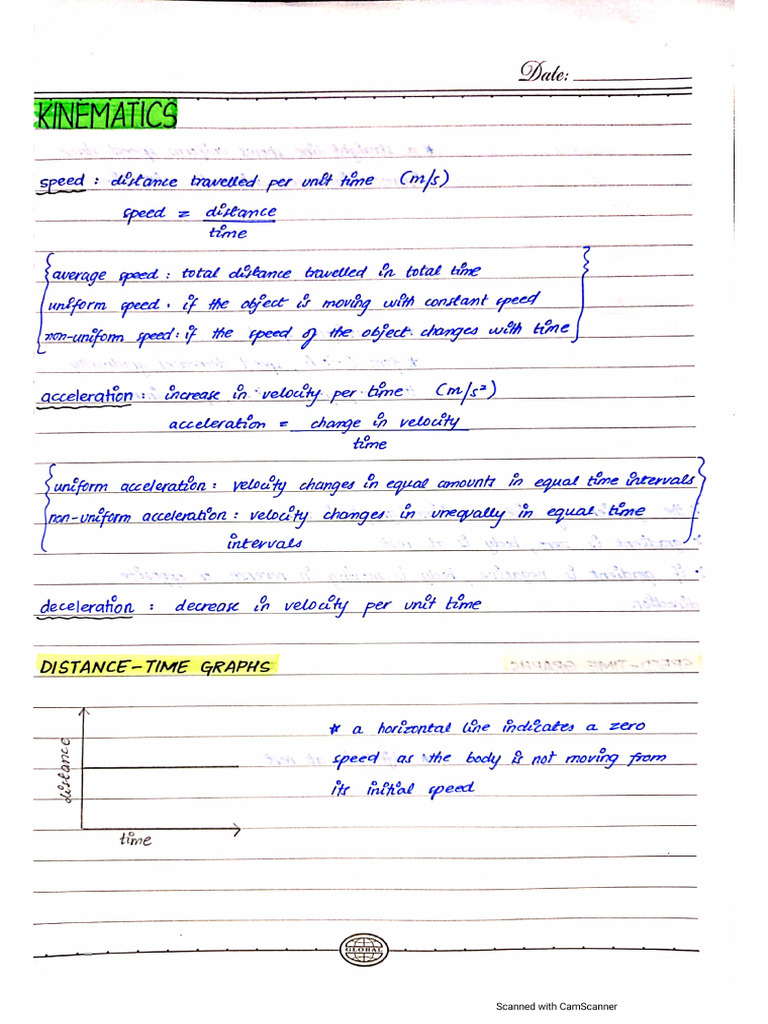 Date:
KINEMATICS
speed : distance travelled per unit time (m/s)
speed = distance
time
average speed : total distance travelled in total time
uniform speed . if the object is moving with constant speed
non-uniform speed : if the speed of the object changes with time
acceleration : increase in velocity per time (m/s²)
acceleration = change in velocity
time
uniform acceleration : velocity changes in equal amounts in equal time intervals
non-uniform acceleration : velocity changes in unequally in equal time
intervals
deceleration : decrease in velocity per unit time
DISTANCE-TIME GRAPHS
* a horizontal line indicates a zero
speed as the body is not moving from
its initial speed
distance
time
GLOBAL
Scanned with CamScanner